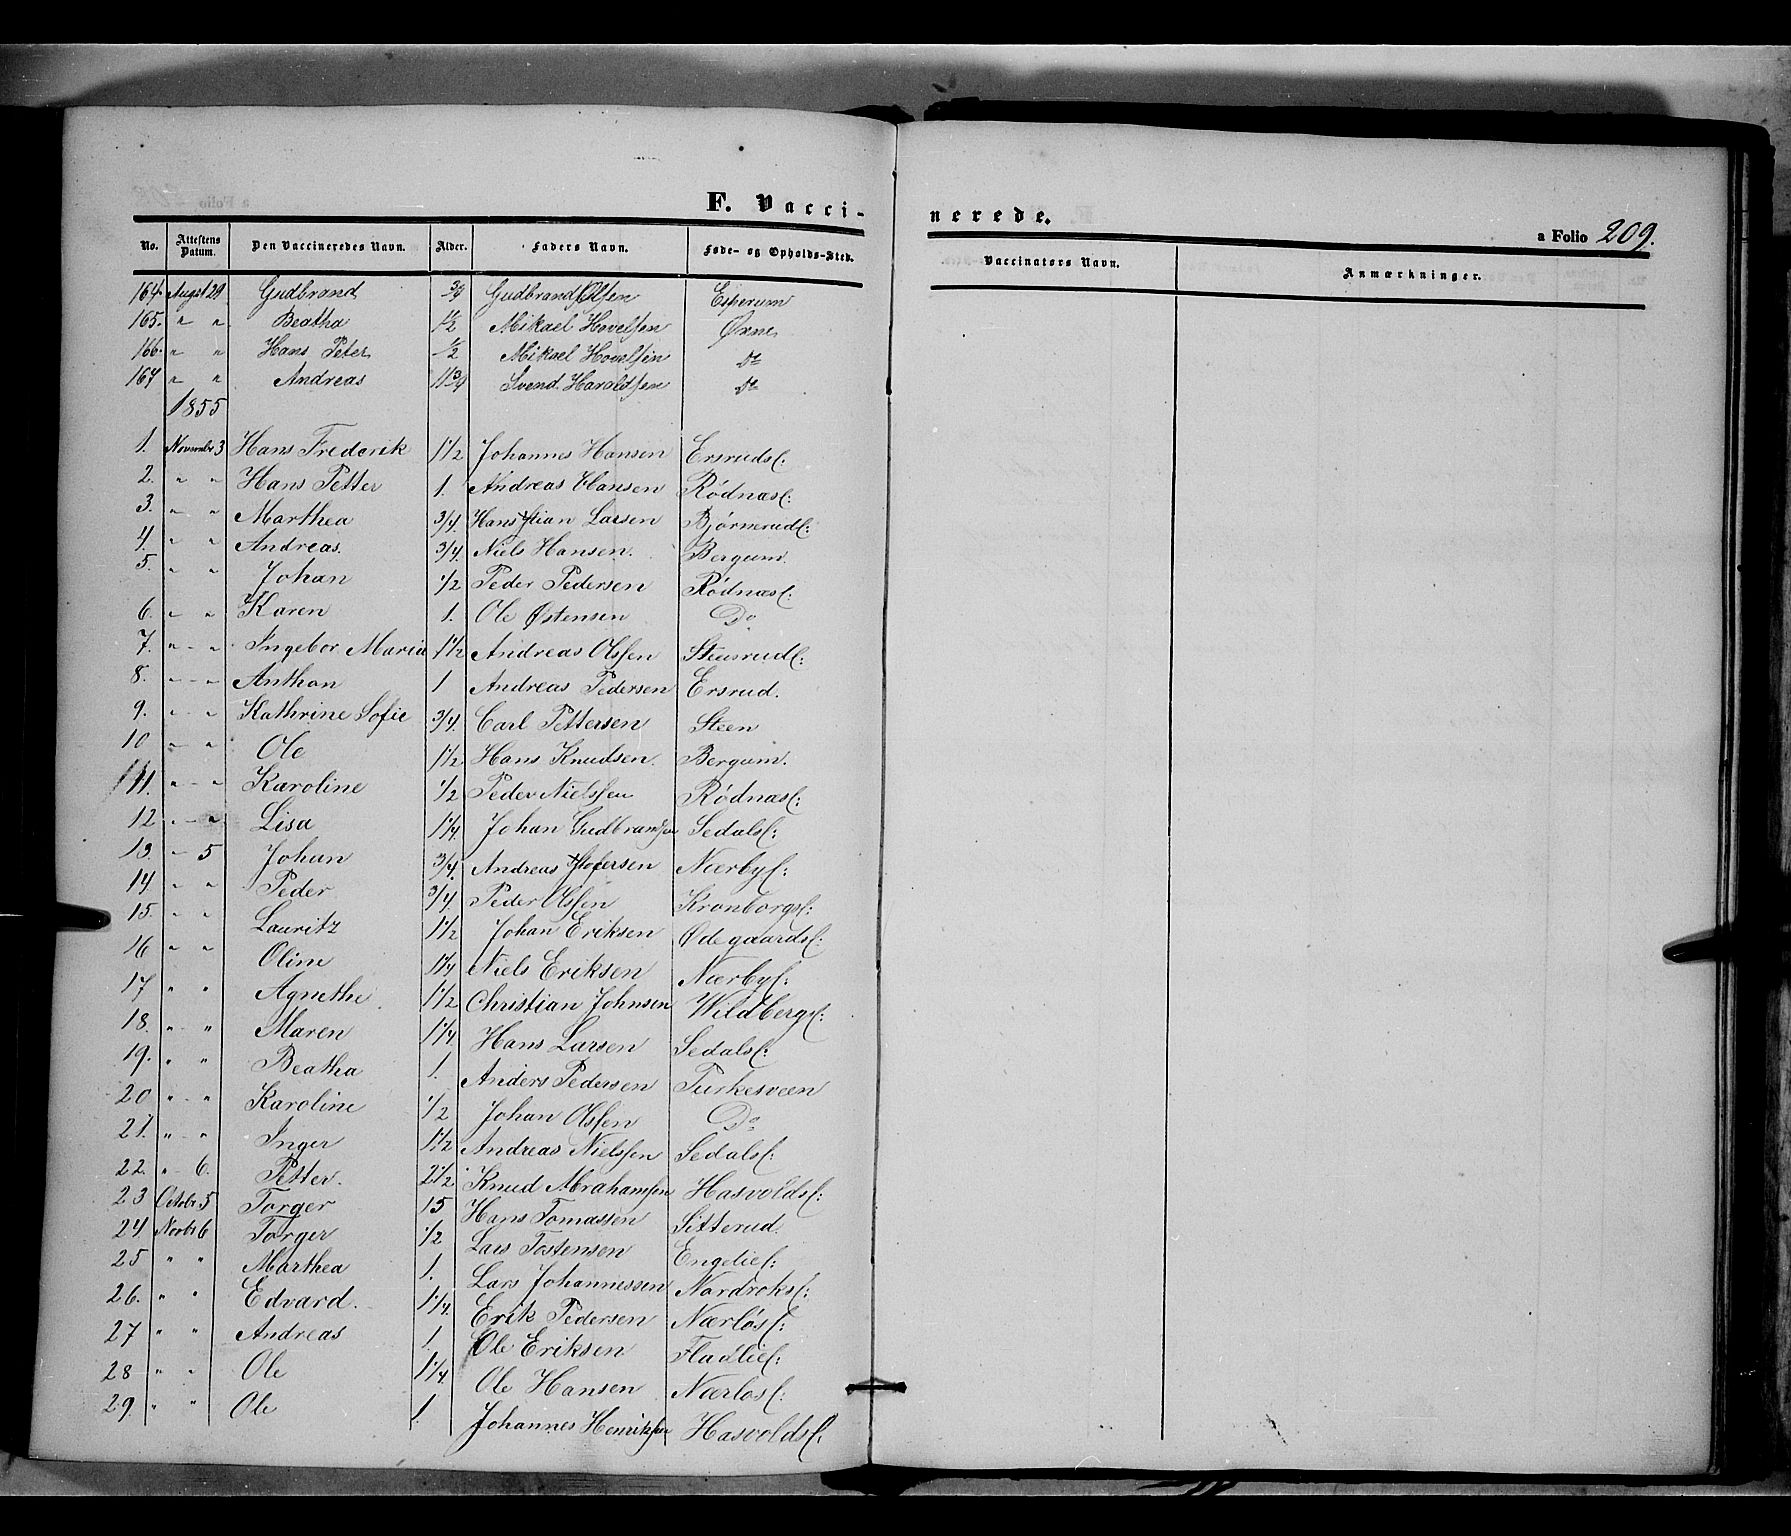 F. Vacci-
nerede.
a Folio 209.
No. Attestens Datum. Den Vaccineredes Navn. Alder. Faders Navn. Føde- og Opholds-Sted. Vaccinators Navn. Anmærkninger.
164. Augst 29 Gudbrand 3/4 Gudbrand Olsen Esperum
165. " " Beatha 1 1/2 Mikael Hovelsen Øxne
166. " " Hans Peter 1/2 Mikael Hovelsen Do
167 " " Andreas 11 3/4 Svend Haroldsen Do
1855
1. Novembr 3 Hans Frederik 1 1/2 Johannes Hansen Ersruds:
2. " " Hans Petter 1. Andreas Hansen Rødnæs:
3. " " Marthea 3/4. Hans Stian Larsen Bjørneruds:
4. " " Andreas. 3/4. Niels Hansen. Bergum.
5. " " Johan 1/2 Peder Pedersen Rødnæs:
6. " " Karen 1. Ole Østensen Do
7. " " Ingebor Maria 1 1/2 Andreas Olsen Steenruds:
8. " " Anthon 1 Andreas Pedersen Ersrud.
9. " " Kathrine Sofie 3/4. Carl Pettersen Steen
10 " " Ole 1 1/2 Hans Knudsen. Bergum.
11. " " Karoline 1/2 Peder Nielsen Rødnæs:
12 " " Lisa 1 1/4. Johan Gudbransen Sedals:
13. " 5 Johan 3/4. Andreas Stofersen Nærbys:
14. " " Peder 3/4. Peder Olsen Kronborgs:
15. " " Lauritz 1 1/2 Johan Eriksen Ødegaards:
16 " " Oline 1 1/4 Niels Eriksen Nærbys:
17 " " Agnethe. 1 1/2 Christian Johnsen Wildbergs:
18. " " Maren 1 1/4 Hans Larsen Sedals:
19. " " Beatha 1. Anders Pedersen Purkesveen
20 " " Karoline 1/2 Johan Olsen Do
21. " " Inger 1 1/2 Andreas Nielsen Sedals:
22. " 6. Petter. 2 1/2 Knud Abrahamsen Hasvolds:
23 Octobr 5 Torger 15 Hans Tomassen Sitterud.
24. Novbr 6 Torger 1/2 Lars Tostensen Engelies:
25 " " Marthea 1. Lars Johannessen Nordroks:
26. " " Edvard. 1 1/4. Erik Pedersen Nærløs:
27 " " Andreas 1. Ole Eriksen Fladlies:
28 " " Ole 1 1/4 Ole Hansen Nærløs:
29. " " Ole 1. Johannes Henriksen Hasvolds: